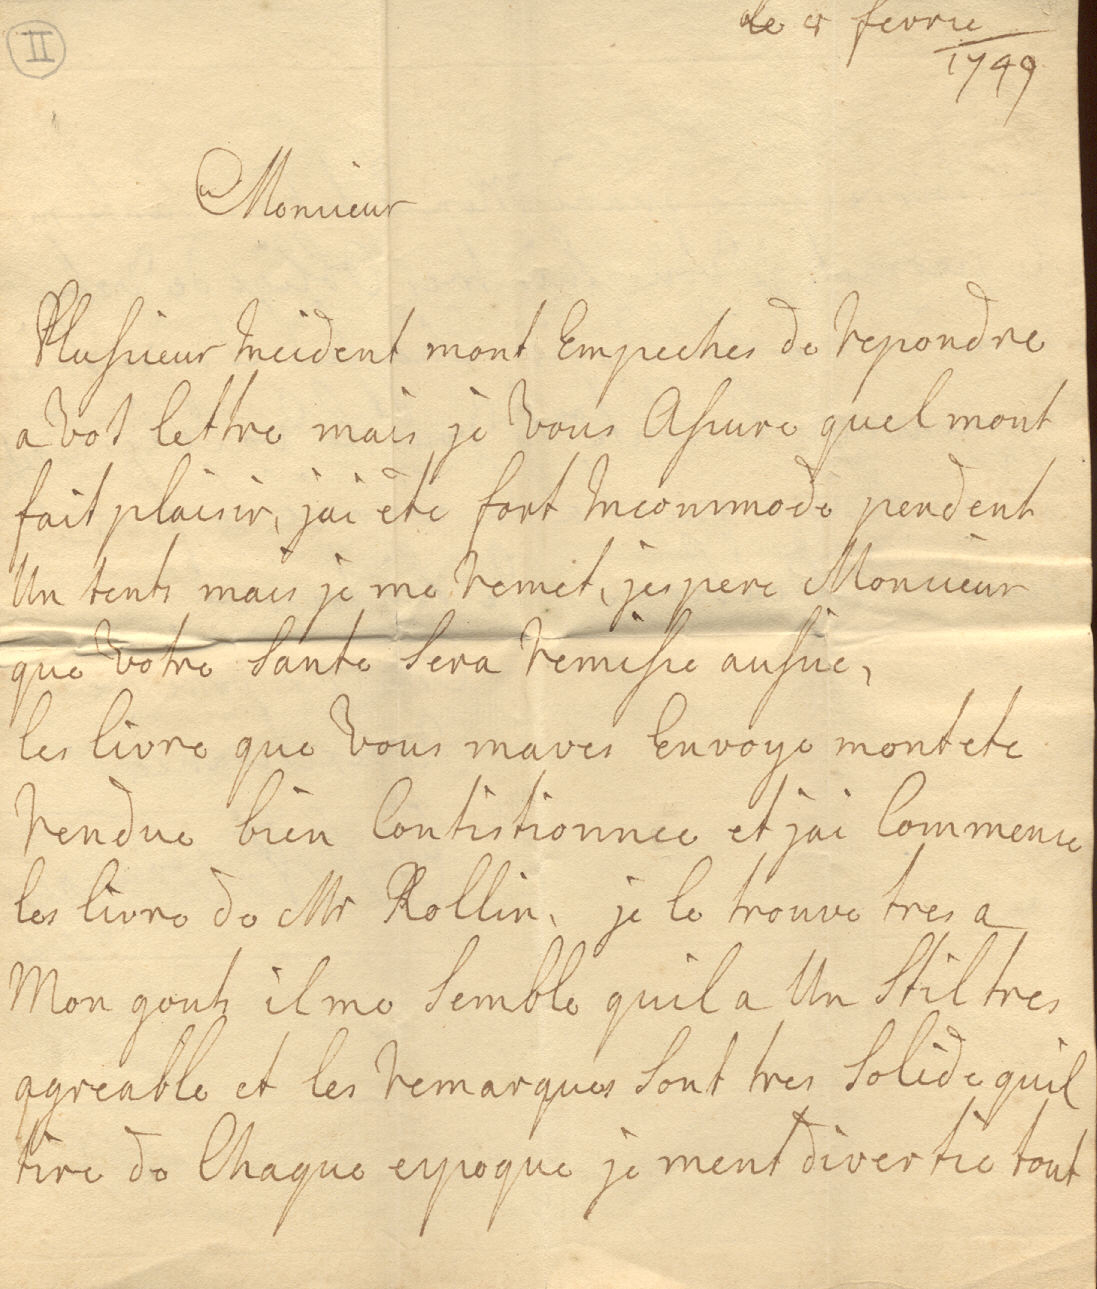 II
le 8 fevrie
1749
Monsieur
Plusieur Incident mont Empeches de repondre
a vot lettre mais je vous Assure quel mont
fait plaisir, jai ète fort Incommode pendent
Un tents mais je me remet, jespere Monsieur
que votre Sante Sera remisse aussie,
les livre que vous maves Envoye montete
rendue bien Contistionnee et jai Commence
les livre de Mr Rollin, je le trouve tres a
Mon gouts il me Semble quil a Un Stil tres
agreable et les remarques Sont tres Solide quil
tire de Chaque eypoque je ment divertie tout